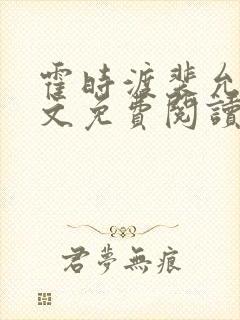 霍時渡裴允
文免費閱讀
君夢無痕